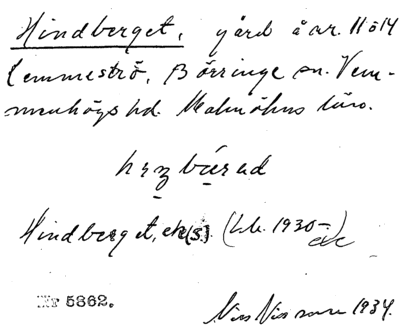 Hindberget, gård å nr. 11 o 14
Lemmeströ, Börringe sn. Vem-
menhögs hd. Malmöhus län.
Hindberget, ek(s). (L.l. 1930-
№ 5362.
Nils Nilsson 1934.